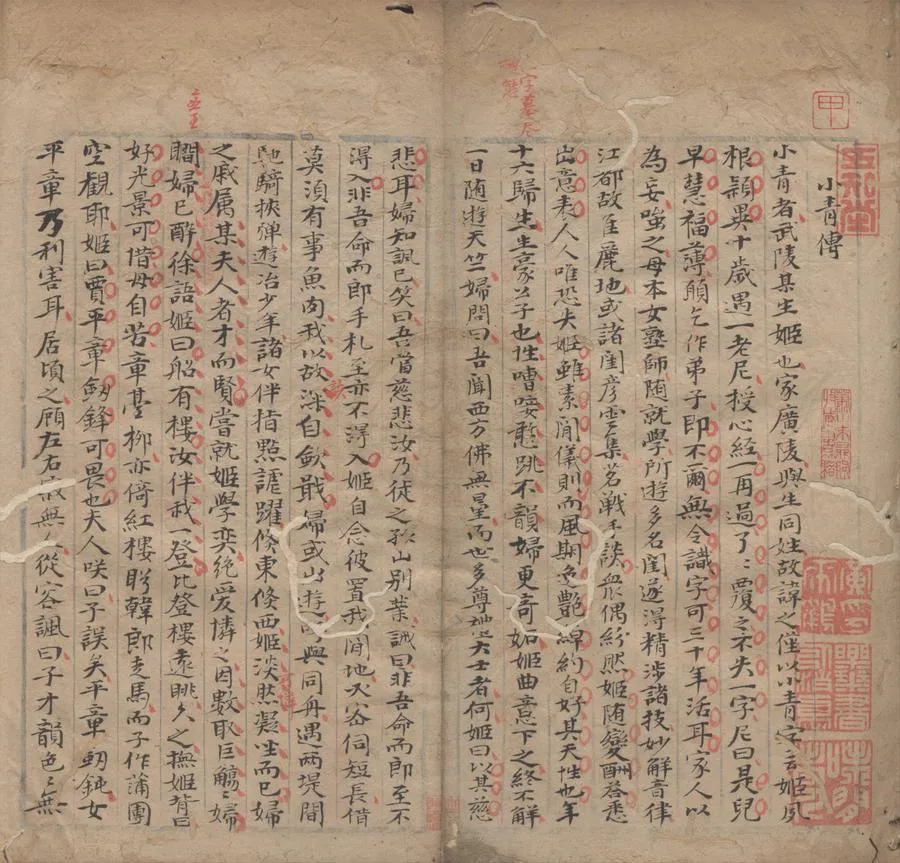 小青傳
小青者武陵某生姬也家廣陵與生同姓故諱之僅以小青字云姬夙
根頴異十歲遇一老尼授心經一再過了〻覆之不失一字尼曰是兒
早慧福薄願乞作弟子即不爾無令識字可三十年活耳家人以
為妄嗤之母本女塾師随就學所遊多名閨遂得精涉諸技妙解音律
江都故佳麗地或諸閨彦雲集茗戰手談衆偶紛然姬随變酬荅悉
出意表人人唯恐失姬雖素閑儀則而風期逸艷綽約自好其天性也年
十六歸生生豪公子也性嘈唼憨跳不韻婦更奇妬姬曲意下之終不解
一日随遊天竺婦問曰吾聞西方佛無量而世多尊禮大士者何姬曰以其慈
悲耳婦知諷已笑曰吾當慈悲汝乃徙之孤山别業誡曰非吾命而郎至不
得入非吾命而郎手札至亦不得入姬自念彼置我閒地必宻伺短長借
莫須有事魚肉我以故深自歛戢婦或出遊呼與同舟遇兩堤間
馳騎挾彈遊冶少年諸女伴指點謔躍倐東倐西姬淡然凝坐而已婦
之戚屬某夫人者才而賢嘗就姬學奕絶愛憐之因數取巨觴〻婦
瞷婦已醉徐語姬曰船有樓汝伴我一登比登樓遠眺久之撫姬背曰
好光景可惜毋自苦章臺柳亦倚紅樓盼韓郎走馬而子作蒲團
空觀耶姬曰賈平章劔鋒可畏也夫人咲曰子誤矣平章劔鈍女
平章乃利害耳居頃之顧左右寂無人從容諷曰子才韻色〻無
甲